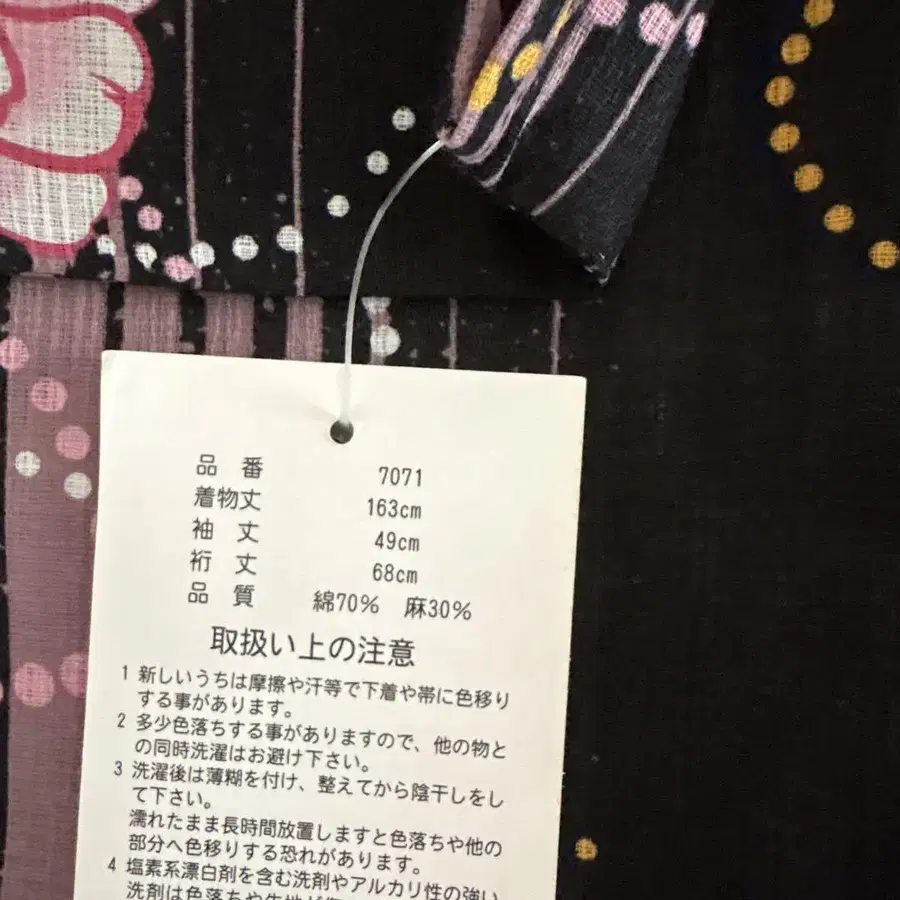 品 番 7071
着物丈 163cm
袖 丈 49cm
裄 丈 68cm
品 質 綿70% 麻30%
取扱い上の注意
1 新しいうちは摩擦や汗等で下着や帯に色移り
する事があります。
2 多少色落ちする事がありますので、他の物と
の同時洗濯はお避け下さい。
3 洗濯後は薄糊を付け、整えてから陰干しをし
て下さい。
濡れたまま長時間放置しますと色落ちや他の
部分へ色移りする恐れがあります。
4 塩素系漂白剤を含む洗剤やアルカリ性の強い
洗剤は色落ちや生地が